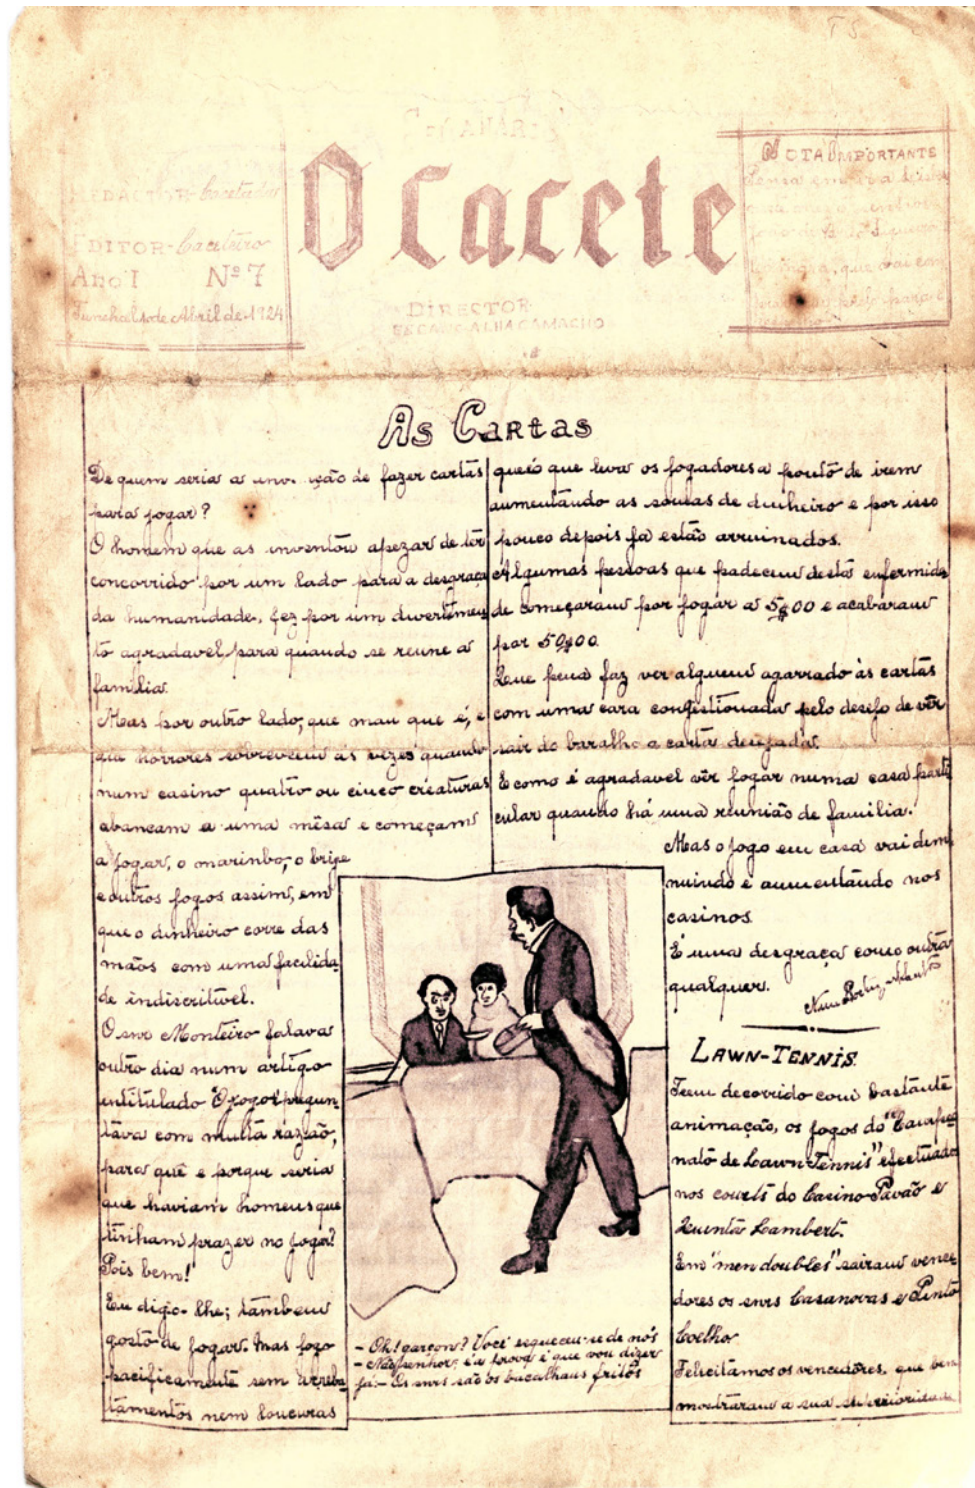 SEMANARIO
O Cacete
REDACTOR-Cacetador
EDITOR-Caceteiro
Ano I Nº 7
Funchal de Abril de 1924
DIRECTOR
ESCANGALHA CAMACHO
NOTA IMPORTANTE
As Cartas
De quem seria a invenção de fazer cartas
para jogar?
O homem que as inventou apezar de ter
concorrido por um lado para a desgraça
da humanidade, fez por um divertimen
to agradavel, para quando se reune a
familia.
Mas por outro lado, que mau que é, e
que horrores sobreveem ás vezes quando
num casino quatro ou cinco creaturas
abancam a uma mêsa e começam
a jogar, o marinho, o brige
e outros jogos assim, em
que o dinheiro corre das
mãos com uma facilida-
de indiscritivel.
O snr Monteiro falava
outro dia num artigo
entitulado "O jogo" pregun-
tava com muita razão,
para quê e porque seria
que haviam homens que
tinham prazer no jogar?
Pois bem!
Eu digo-lhe; tambem
gosto de jogar. Mas jogo
pacificamente sem arreba-
tamentos nem loucuras
que é o que leva os jogadores a pontõ de irem
aumentando as somas de dinheiro e por isso
pouco depois já estão arruinados.
Algumas pessoas que padecem desta enfermida
de começaram por jogar a 5$00 e acabaram
por 50$00.
Que pena faz ver alguem agarrado às cartas
com uma cara congestionada pelo desejo de vêr
sair do baralho a carta desejada.
E como é agradavel vêr jogar numa casa parti
cular quando há uma reunião de familia.
Mas o jogo em casa vai dimi
nuindo e aumentando nos
casinos.
É uma desgraça como outra
qualquer.
LAWN-TENNIS.
Teem decorrido com bastante
animação, os jogos do "Campeo
nato de Lawn-Tennis" efectuados
nos courts do Casino-Pavão e
Quinta Lambert.
Em "men doubles" sairam vence-
dores os snrs Casanovas e Pinto
Coelho
Felicitamos os vencedores, que bem
mostraram a sua superioridade
- Oh! garçon? Você esqueceu-se de nós
- Não senhor; e a prova é que vou dizer
já:- Os snrs são os bacalhaus fritos